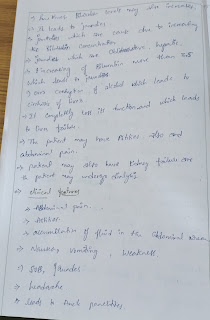 → It leads to jaundice
→ jaundice which are caused due to increasing
the Bilirubin concentration
→ jaundice which are obstructive, hepatic,
→ Increasing of Bilirubin more than
which leads to jaundice
→ over consumption of alcohol which leads to
cirrhosis of liver
→ It completely loss its function and which leads
to liver failure.
→ The patient may have Ascites also and
abdominal pain.
→ patient may also have kidney failure and
the patient may undergo dialysis.
→ clinical features
→ Abdominal pain.
→ Accumulation of fluid in the abdominal
→ Nausea, vomiting, weakness
→ Jaundice
→ headache
→ leads to